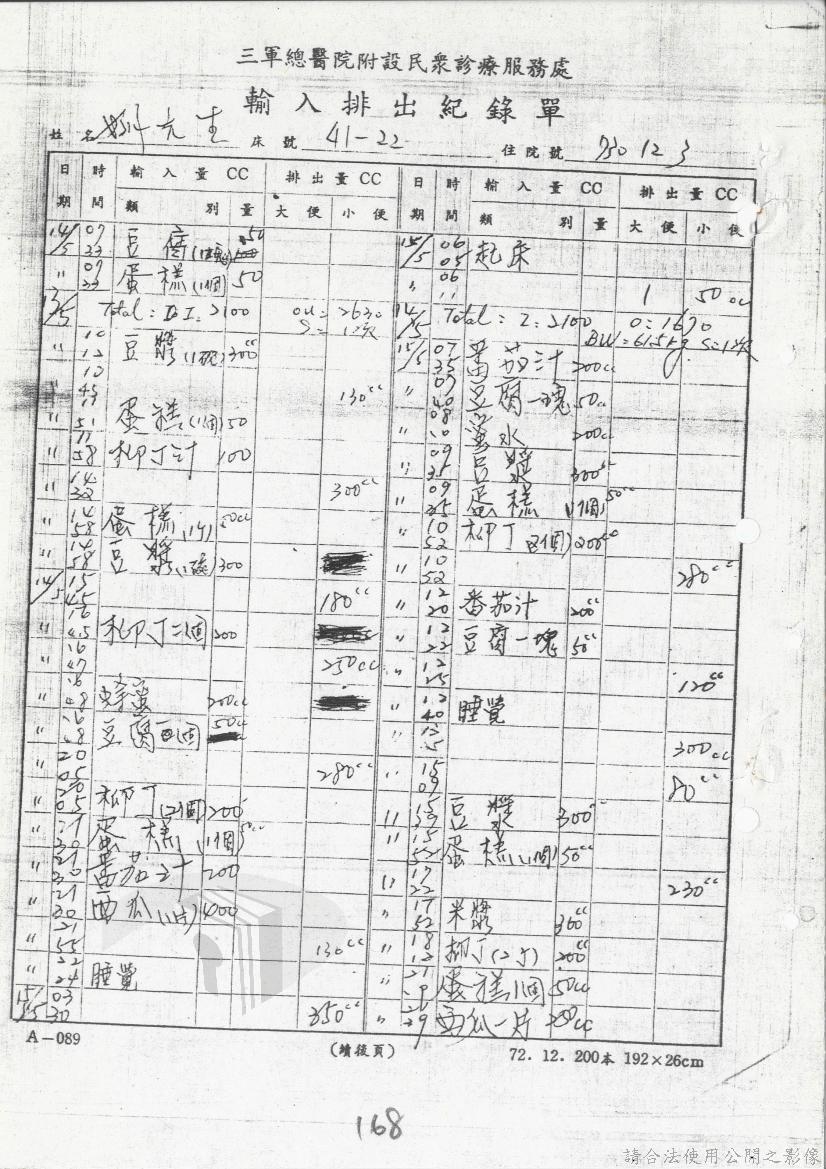 三軍總醫院附設民衆診療服務處
輸入排出紀錄單
姓名 先生 床號 41-22 住院號 750123
日期 時間 輸入量CC 排出量CC
類別 量 大便 小便
14/5 07 23 豆腐 50
〃 07 23 蛋糕(1個) 50
13/5 Total: I: 2100 ou: 2630
S= 1次
〃 10 12 豆漿(1碗) 300cc
〃 10 45 130cc
〃 11 51 蛋糕(1個) 50
〃 11 58 柳丁汁 100
14 32 300cc
〃 14 58 蛋糕(1个) 50cc
〃 14 58 豆漿(1碗) 300
14/5 15 45 180cc
〃 16 45 柳丁二個 200
16 47 250cc
〃 16 48 蜂蜜 200cc
〃 16 48 豆腐一個 50cc
〃 20 05 280cc
〃 20 05 柳丁(2個) 200
〃 21 30 蛋糕(1個) 50cc
〃 21 30 蕃茄汁 200
〃 21 30 西瓜(1片) 400
〃 21 55 130cc
〃 22 24 睡覺
15/5 03 30 350cc
日期 時間 輸入量CC 排出量CC
類別 量 大便 小便
15/5 06 05 起床
〃 06 11 1 50cc
14/5 Total: I: 2100 O: 1670
BW=61.5kg S=1次
15/5 07 35 蕃茄汁 200cc
〃 07 40 豆腐一塊 50cc
〃 08 10 蜜水 200cc
〃 09 35 豆漿 300cc
〃 09 35 蛋糕(1個) 50cc
〃 10 52 柳丁(2個) 200cc
〃 10 52 280cc
〃 12 20 番茄汁 200cc
〃 12 22 豆腐一塊 50cc
〃 12 25 120cc
〃 12 40 睡覺
〃 300cc
〃 15 09 80cc
〃 15 豆漿 300cc
〃 15 52 蛋糕(1個) 50cc
〃 17 22 230cc
〃 17 52 米漿 360cc
〃 18 12 柳丁(2个) 200cc
〃 21 29 蛋糕1個 50cc
〃 21 29 西瓜一片 250cc
A-089 (續後頁) 72.12.200本 192×26cm
168
請合法使用公開之影像